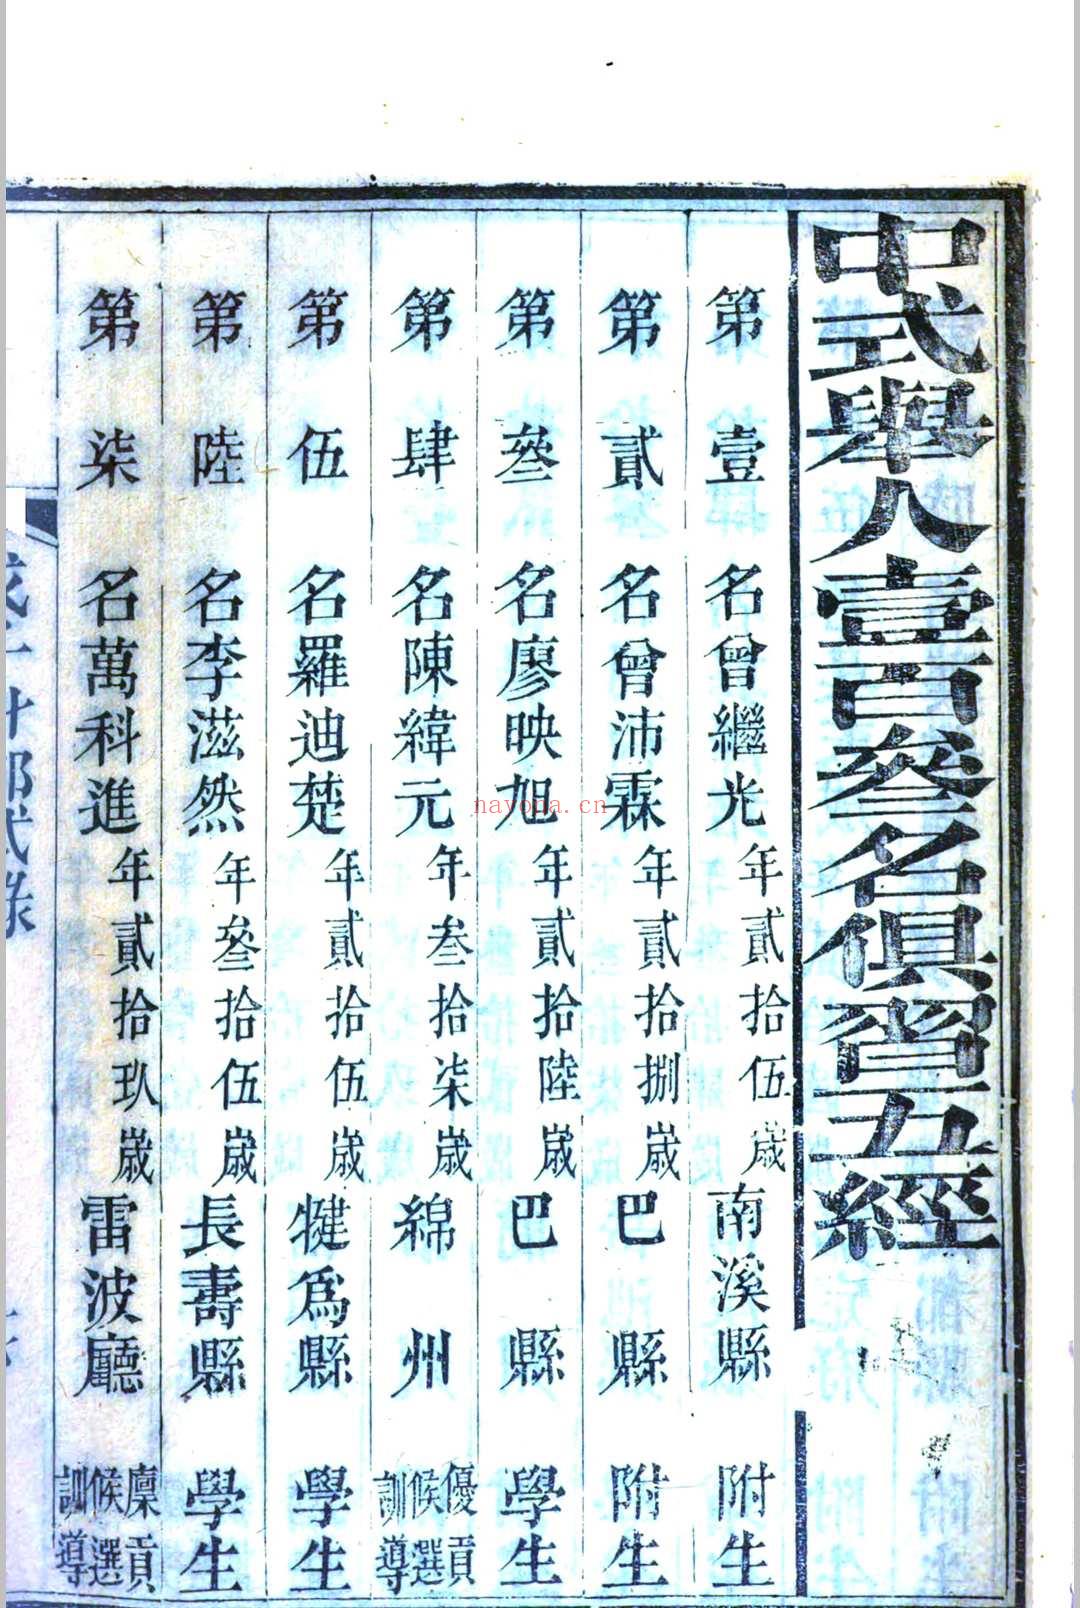 中式舉人壹百叄名俱習五經
第壹名曾繼光年貳拾伍歲南溪縣附生
第貳名曾沛霖年貳拾捌歲巴縣附生
第叄名廖映旭年貳拾陸歲巴縣學生
第肆名陳緯元年叁拾柒歲綿州優貢候選訓導
第伍名羅迪楚年貳拾伍歲犍爲縣學生
第陸名李滋然年叄拾伍歲長壽縣學生
第柒名萬科進年貳拾玖歲雷波廳廩貢候選訓導
nayona.cn